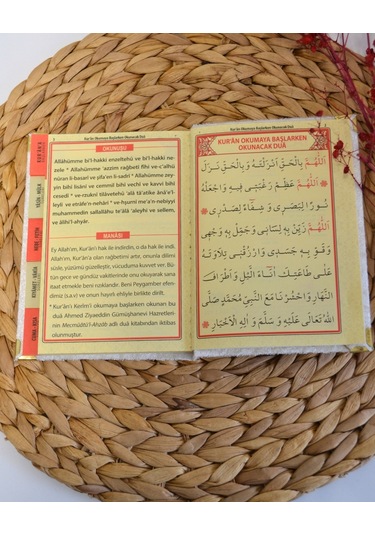 Kur'ân Okumaya Başlarken Okunacak Duâ
OKUNUŞU
Allâhümme bi'l-hakki enzeltehû ve bi'l-hakki ne-
zele * Allâhümme 'azzim rağbetî fîhi ve-c'alhü
nûran li-basarî ve şifâ'en li-sadrî * Allâhümme zey-
yin bihî lisânî ve cemmil bihî vechî ve kavvi bihî
cesedî * ve-rzuknî tilâvetehû 'alâ tâ'atike ânâ'e'l-
leyli ve etrâfe'n-nehâri * ve-hşurnî me'a'n-nebiyyi
muhammedin sallallâhu te'âlâ 'aleyhi ve sellem,
ve âlihi'l-ahyâr.
MANÂSI
Ey Allah'ım, Kur'ân'ı hak ile indirdin, o da hak ile indi.
Allah'ım, Kur'ân'a olan rağbetimi artır, onunla dilimi
süsle, yüzümü güzelleştir, vücuduma kuvvet ver. Bü-
tün gece ve gündüz vakitlerinde onu okuyarak sana
itaat etmekle beni rızıklandır. Beni Peygamber efen-
dimiz (s.a.v) ve onun hayırlı ehliyle birlikte dirilt.
* Kur'ân-ı Kerîm'i okumaya başlarken okunan bu
duâ Ahmed Ziyaeddin Gümüşhânevî Hazretleri-
nin Mecmûâtü'l-Ahzâb adlı duâ kitabından iktibas
olunmuştur.
Kur'ân Okumaya Başlarken Okunacak Duâ
KUR'ÂN OKUMAYA BAŞLARKEN
OKUNACAK DUÂ
اَللّٰهُمَّ بِالْحَقِّ اَنْزَلْتَهُ وَ بِالْحَقِّ نَزَلَ
اَللّٰهُمَّ عَظِّمْ رَغْبَتِى فِيهِ وَ اجْعَلْهُ
نُورًا لِبَصَرِى وَ شِفَاءً لِصَدْرِى
اَللّٰهُمَّ زَيِّنْ بِهِ لِسَانِى وَ جَمِّلْ بِهِ وَجْهِى
وَ قَوِّ بِهِ جَسَدِى وَ ارْزُقْنِى تِلَاوَتَهُ
عَلَى طَاعَتِكَ اٰنَاءَ الَّيْلِ وَ اَطْرَافَ
النَّهَارِ وَ احْشُرْنَا مَعَ النَّبِىِّ مُحَمَّدٍ صَلَّى
اللّٰهُ تَعَالَى عَلَيْهِ وَ سَلَّمَ وَ اٰلِهِ الْاَخْيَارِ